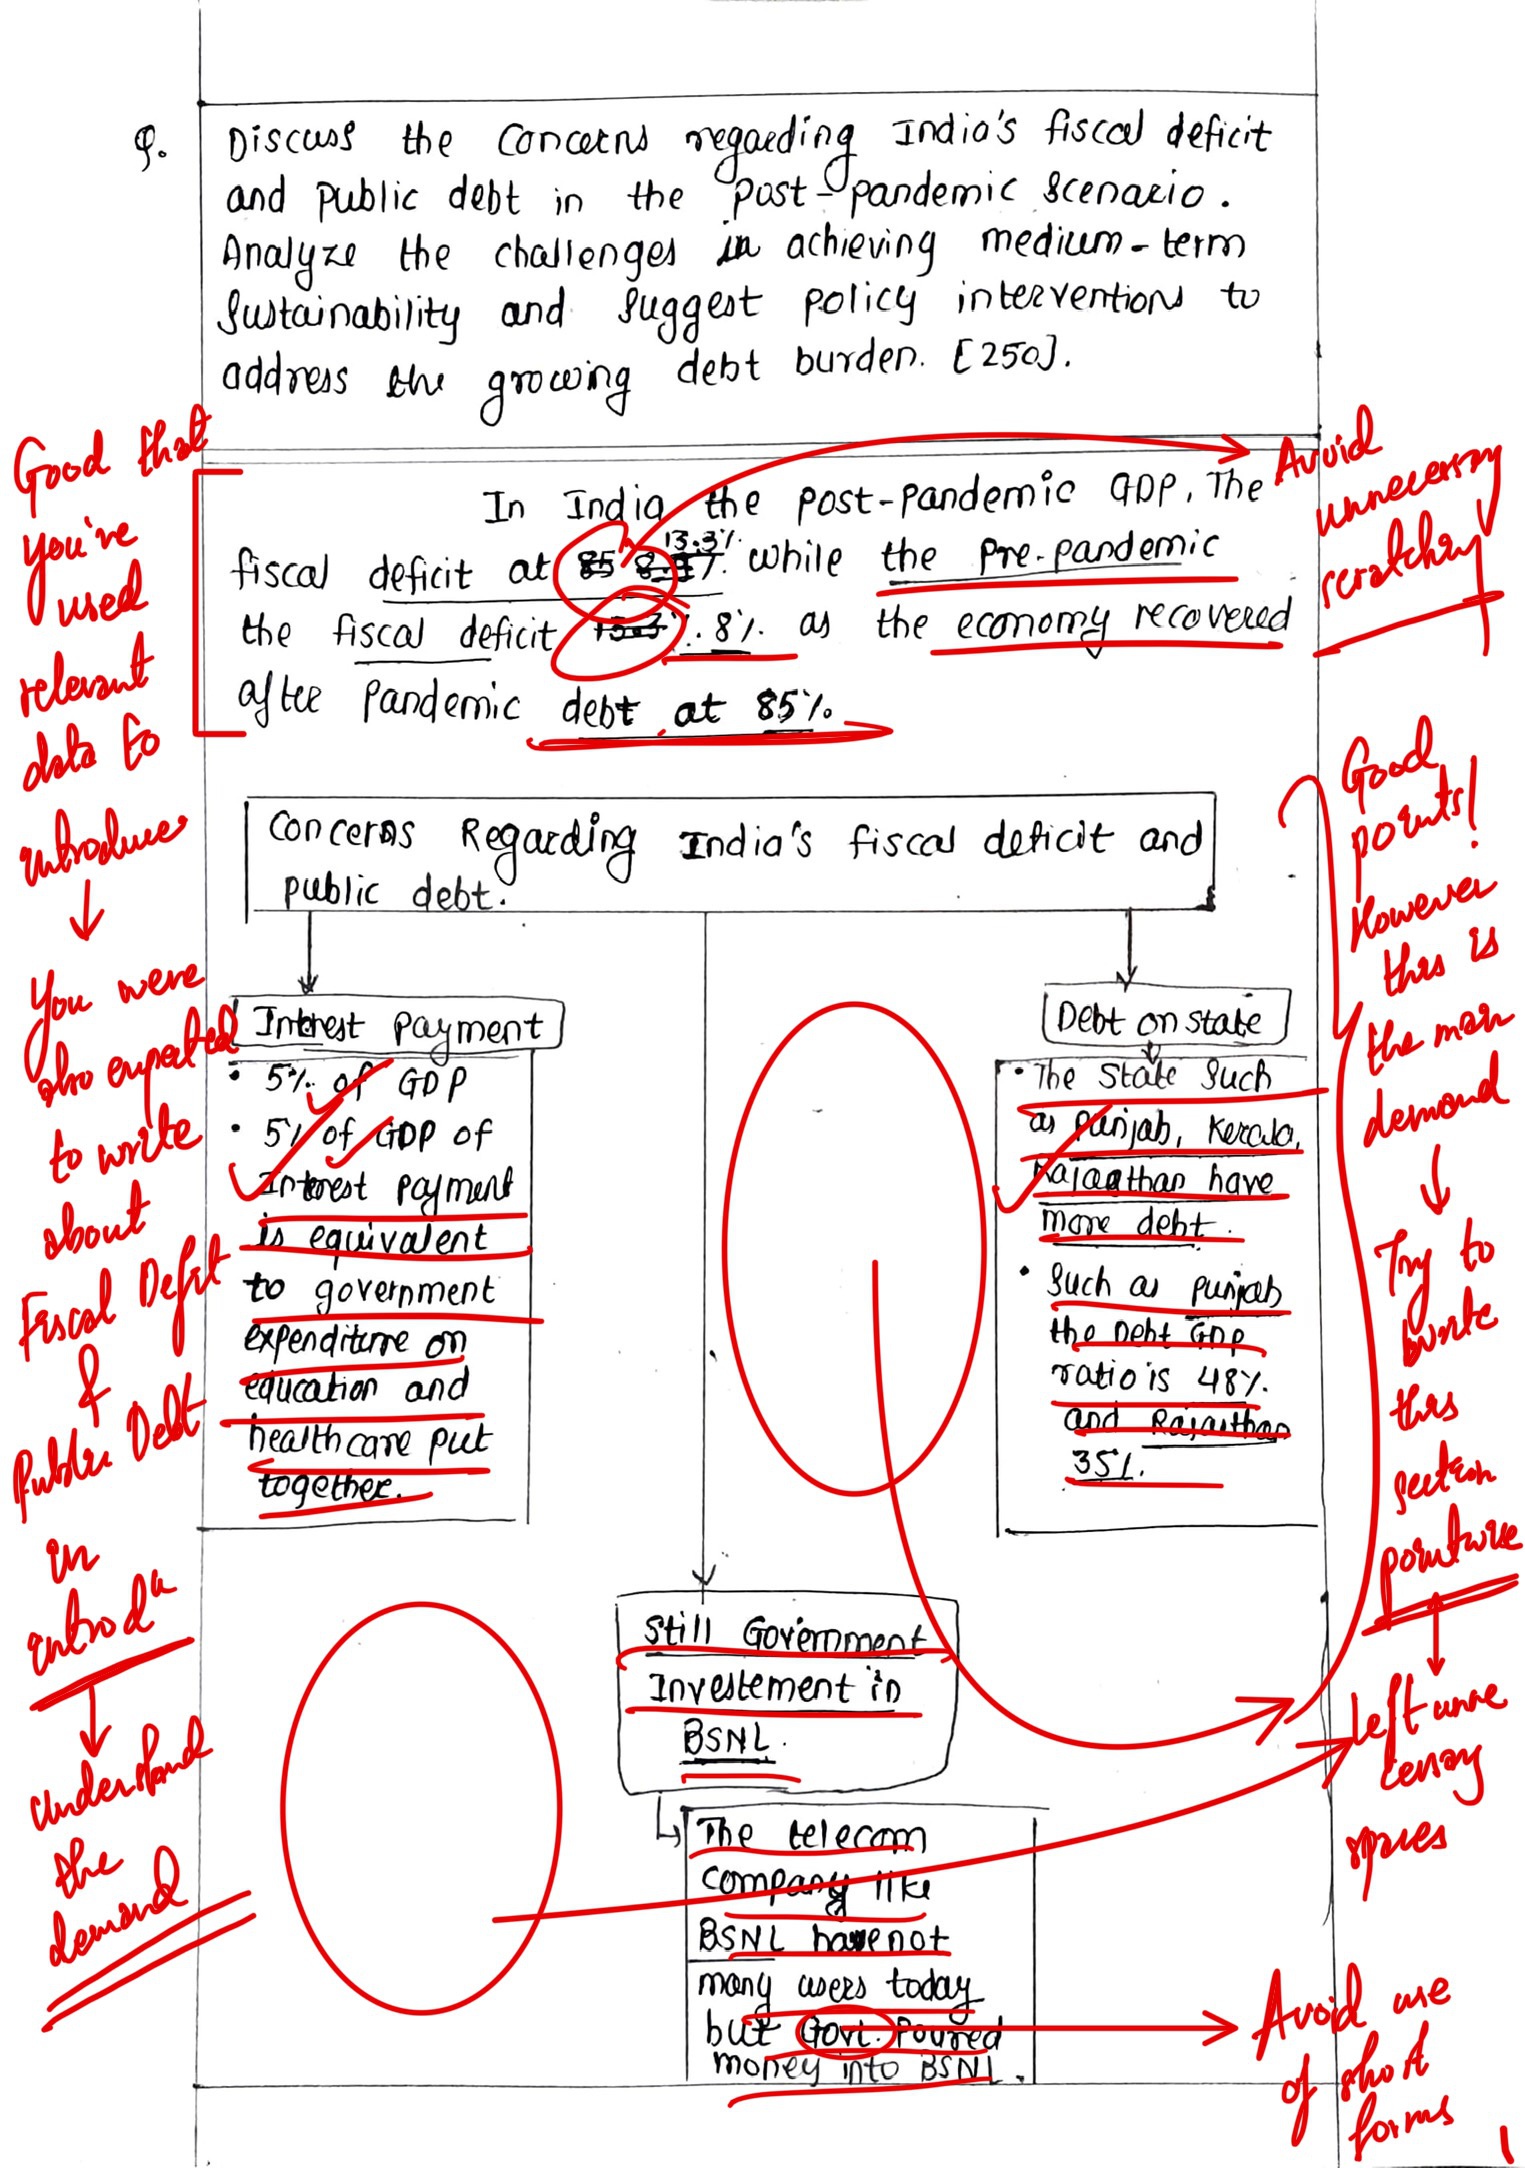 Q.
Discuss the concerns regarding India's fiscal deficit
and public debt in the post-pandemic scenario.
Analyze the challenges in achieving medium-term
sustainability and suggest policy interventions to
address the growing debt burden. [250].
In India the post-pandemic GDP, The
fiscal deficit at 85 13.3% while the pre-pandemic
the fiscal deficit 13.3% 8% as the economy recovered
after pandemic debt at 85%.
Concerns Regarding India's fiscal deficit and
public debt.
Interest payment
• 5% of GDP
• 5% of GDP of
Interest payment
is equivalent
to government
expenditure on
education and
healthcare put
together.
Debt on state
• The State such
as Punjab, Kerala,
Rajasthan have
more debt.
• Such as punjab
the Debt GDP
ratio is 48%
and Rajasthan
35%.
Still Government
Investement in
BSNL.
The telecom
company like
BSNL have not
many users today
but Govt. Poured
money into BSNL.
Good that
you've
used
relevant
data to
introduce
You were
also expected
to write
about
Fiscal Deficit
&
Public Debt
in
introdn
understand
the
demand
Avoid
unnecessary
scratching
Good
points!
However
this is
the main
demand
Try to
write
this
section
pointwise
Left unne
cessary
spaces
Avoid use
of short
forms
1